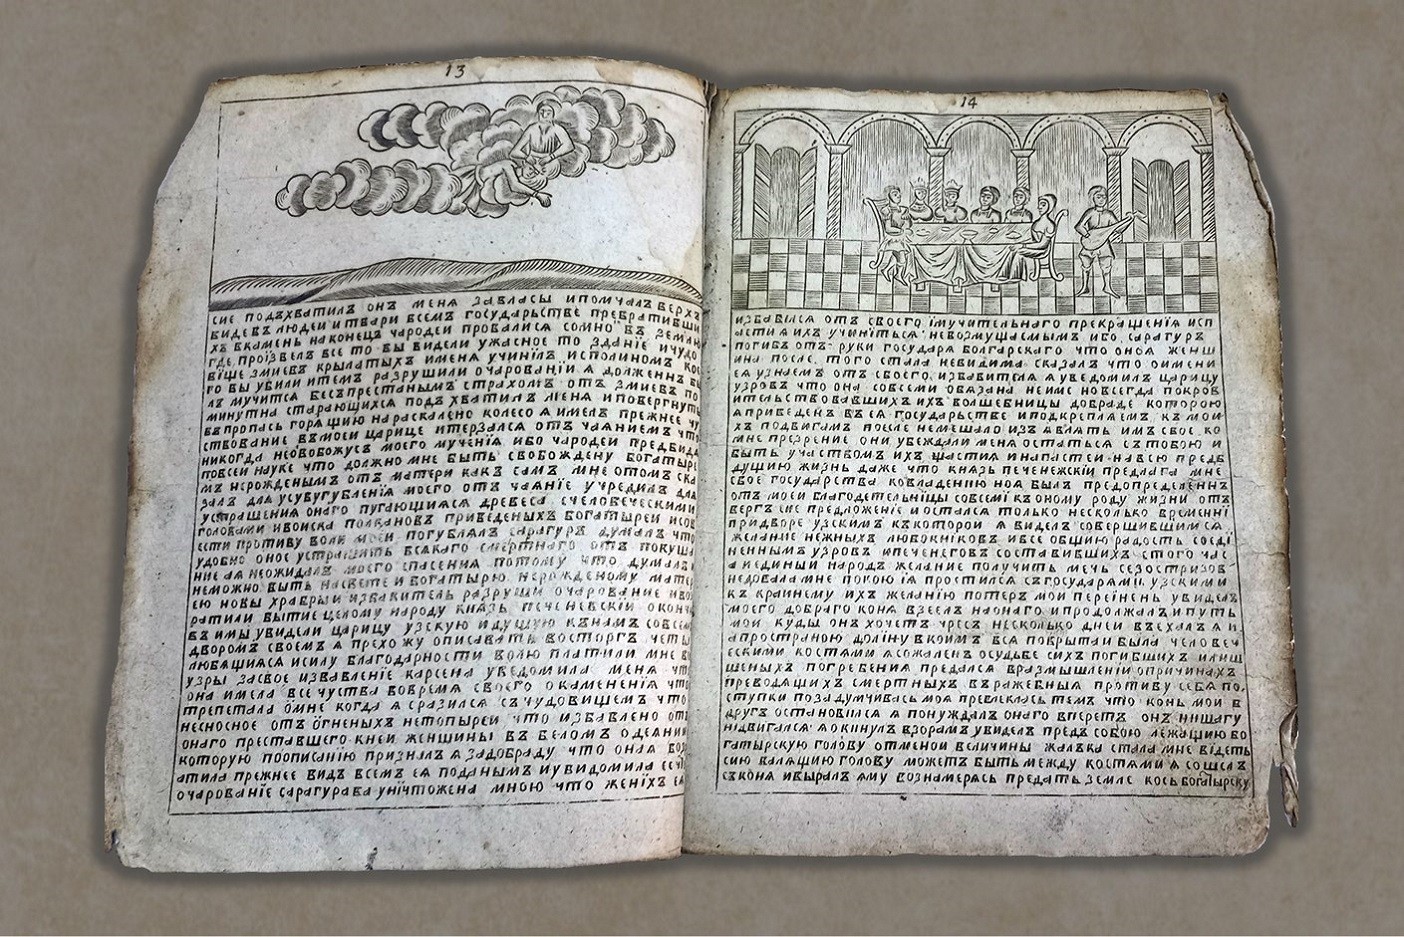 13
сие подъхватилъ онъ меня завласы ипомчалъ верхъ
видевъ людеи итвари всемъ государьстве превративши
хъ вкамень наконецъ чародеи провалися сомно въ землю
где произвелъ все то вы видели ужасное то здание ичудо
више змиевъ крылатыхъ именя учинилъ исполиномъ кое
го вы убили итемъ разрушили очарованiи я долженъ бы
лъ мучится бесъпрестанымъ страхомъ отъ змиевъ по
минутна старающихся подъ хватилъ меня иповергнуть
въпропась горящию нараскалено колесо я имелъ прежнее чу
ствование въмоеи царице итерзался отъ чаянiемъ что
никогда неовобожусъ моего мученiя ибо чародеи предвида
повсеи науке что должно мне быть свобождену богатыре
мъ нерожденымъ отъ матери какъ самъ мне отомъ ска
залъ для усугубленiя моего отъ чаянiе учредилъ для
устрашения онаго пугающияся древеса счеловеческими
головами ивоиска полкановъ приведеныхъ богатыреи исов
сети противу воли моеи погублялъ сарагуръ думалъ что
удобно оное устрашить всакаго смертнаго отъ покуша
ние ая неожидалъ моего спасения потому что думалъ
неможно быть насвете и богатырю нерожденому матер
ею новы храбрыи избавитель разруши очарование иво
ратили бытие целому народу князь печеневскiи оконча
въ имы увидели царицу узскую идущую кънамъ совсем
дворомъ своемъ я прехожу описавать восторгъ четы
любящияся исилу благодарности волю платили мне в
узры засвое избавленiе карсена уведомила меня что
она имела все чуства вовремя своего окаменения что
трепетала омне когда я сразился съчудовищемъ что
несносное отъ огненыхъ нетопыреи что избавлено отъ
онаго преставшего кнеи женщины въ беломъ одеании
которую поописанiю призналъ я задобраду что оная воз
атила прежнее видъ всемъ ея поданымъ иувидомила
очарованiе сарагурава унiчтожена мною что женiхъ ея
14
избавился отъ своего iмучительнаго прекращенiя исп
астия ихъ учинiться невозмущаемымъ ибо сарагуръ
погибъ отъ руки государя болгарскаго что оноя женщ
ина после того стала невидима сказалъ что оимени
ея узнаемъ отъ своего избавителя я уведомилъ царицу
узровъ что она совсеми обязана неиме новсегда покров
ительствовавшихъ ихъ волшебницы добраде которою
я приведенъ въ ея государьстве иподкрепляемъ къ мои
хъ подвигамъ после немешало изъявлять имъ свое ко
мне презрение они убеждали меня остаться съ тобою и
быть участвомъ ихъ щастия инапастеи навсю предб
дущию жизнь даже что князь печенежскiи предлага мне
свое государства ковладению ноя былъ предопределеннъ
отъ моеи благодетельнiцы совсемi къоному роду жизни отъ
вергъ сие предложенiе иостался только несколько временнi
придворе узскимъ къкоторои я виделъ совершившимися
желание нежныхъ любокниковъ ивсе общию радость соедi
неннымъ узровъ ипеченеговъ составившихъ стого час
а иединый народъ желание получить мечь сезострiзовъ
недовала мне покою iя простился съгосударями узскими
къ краинему ихъ желанию потеръ мои пере iень увиделъ
моего добраго коня взселъ наонаго ипродолжалъ ипуть
мои куды онъ хочетъ чресъ несколько днеи въехалъ я и
апространою долiну вкоимъ вся покрытаи была человеч
ескими костями я сожаленъ осудьбе сихъ погибшихъ илиш
шеныхъ погребения предался вразмышленiи опричинахъ
преводящихъ смертныхъ въражебныя противу себя по
ступки позадумчивась моя превлеклась темъ что конь мои в
другъ остановился я понуждалъ онаго вперетъ онъ нишагу
нiдвигался я окинулъ взорамъ увиделъ предъ собою лежащию бо
гатырскую голову отменои величины жалька стала мне вiдеть
сию валящию голову можетъ быть между костями я сошелъ
съконя ивыралъ яму вознамерясь предать земле кось богатырску